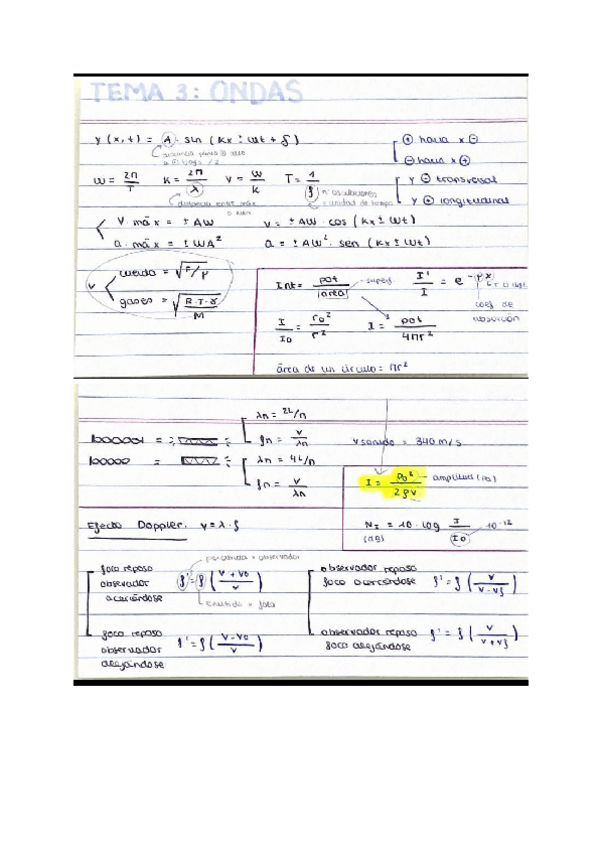 TEMA 3: ONDAS
y (x, t) = A · sin (Kx ± ωt + δ)
⊕ hacia x ⊖
⊖ hacia x ⊕
ω = 2π/T K = 2π/λ v = ω/K T = 1/f
nº oscilaciones
x unidad de tiempo
y ⊖ transversal
y ⊕ longitudinal
V. máx = ± Aω v = ± Aω · cos (Kx ± ωt)
a. máx = ± ωA² a = ± Aω² · sen (Kx ± ωt)
v
cuerda = √F/μ
gases = √R·T·γ/M
Int = pot/área superf. I'/I = e^-μx
coef de
absorción
I/I0 = r0²/r² I = pot/4πr²
área de un círculo = πr²
λn = 2L/n
fn = v/λn
v sonido = 340 m/s
λn = 4L/n
fn = v/λn
I = P0²/2ρv amplitud (Pa)
Efecto Doppler: v = λ · f
NI = 10 · log I/I0 10^-12
(dB)
percibida x observador
foco reposo
observador
acercándose
f' = f (v + v0/v)
emitida x foco
observador reposo
foco acercándose
f' = f (v/v - vf)
foco reposo
observador
alejándose
f' = f (v - v0/v)
observador reposo
foco alejándose
f' = f (v/v + vf)